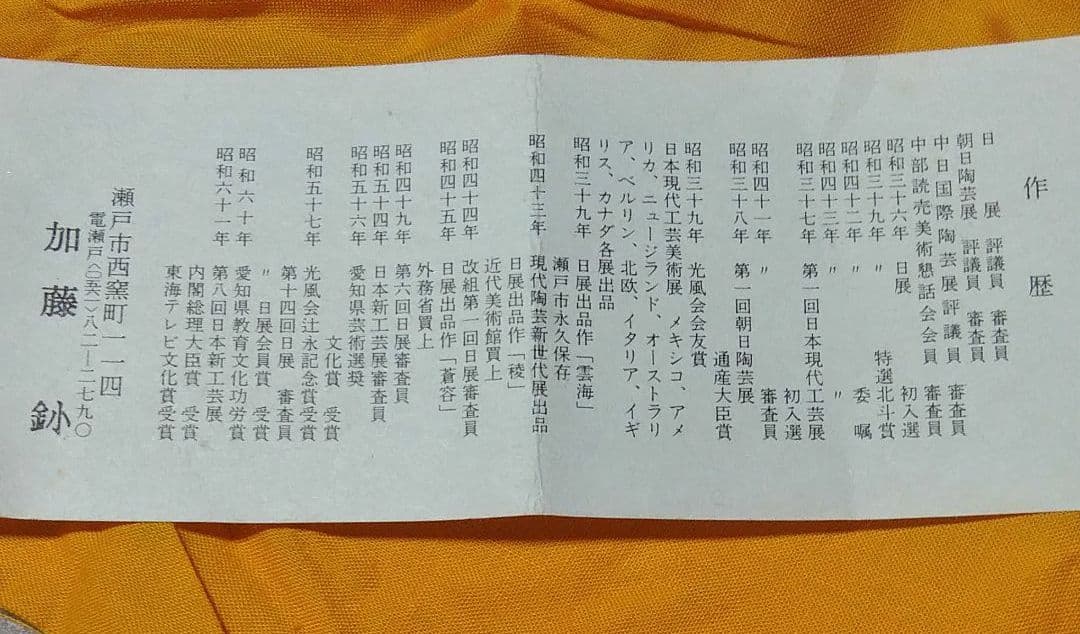 作歴
日展 評議員 審査員
朝日陶芸展 評議員 審査員
中日国際陶芸展評議員 審査員
中部読売美術懇話会会員 審査員
昭和三十六年 日展 初入選
昭和三十九年 〃 特選北斗賞
昭和四十二年 〃 委嘱
昭和四十三年 〃
昭和三十七年 第一回日本現代工芸展 初入選
昭和四十一年 〃 審査員
昭和三十八年 第一回朝日陶芸展 通産大臣賞
昭和三十九年 光風会会友賞
日本現代工芸美術展 メキシコ、アメ
リカ、ニュージランド、オーストラリ
ア、ベルリン、北欧、イタリア、イギ
リス、カナダ各展出品
昭和三十九年 日展出品作「雲海」
瀬戸市永久保存
昭和四十三年 現代陶芸新世代展出品
日展出品作「稜」
近代美術館買上
昭和四十四年 改組第一回日展審査員
昭和四十五年 日展出品作「蒼容」
外務省買上
昭和四十九年 第六回日展審査員
昭和五十四年 日本新工芸展審査員
昭和五十六年 愛知県芸術選奨
文化賞 受賞
昭和五十七年 光風会辻永記念賞受賞
第十四回日展 審査員
〃 日展会員賞 受賞
昭和六十年 愛知県教育文化功労賞
昭和六十一年 第八回日本新工芸展
内閣総理大臣賞 受賞
東海テレビ文化賞受賞
瀬戸市西窯町一一四
電瀬戸〈〇五六一〉八二―二七九〇
加藤 釥